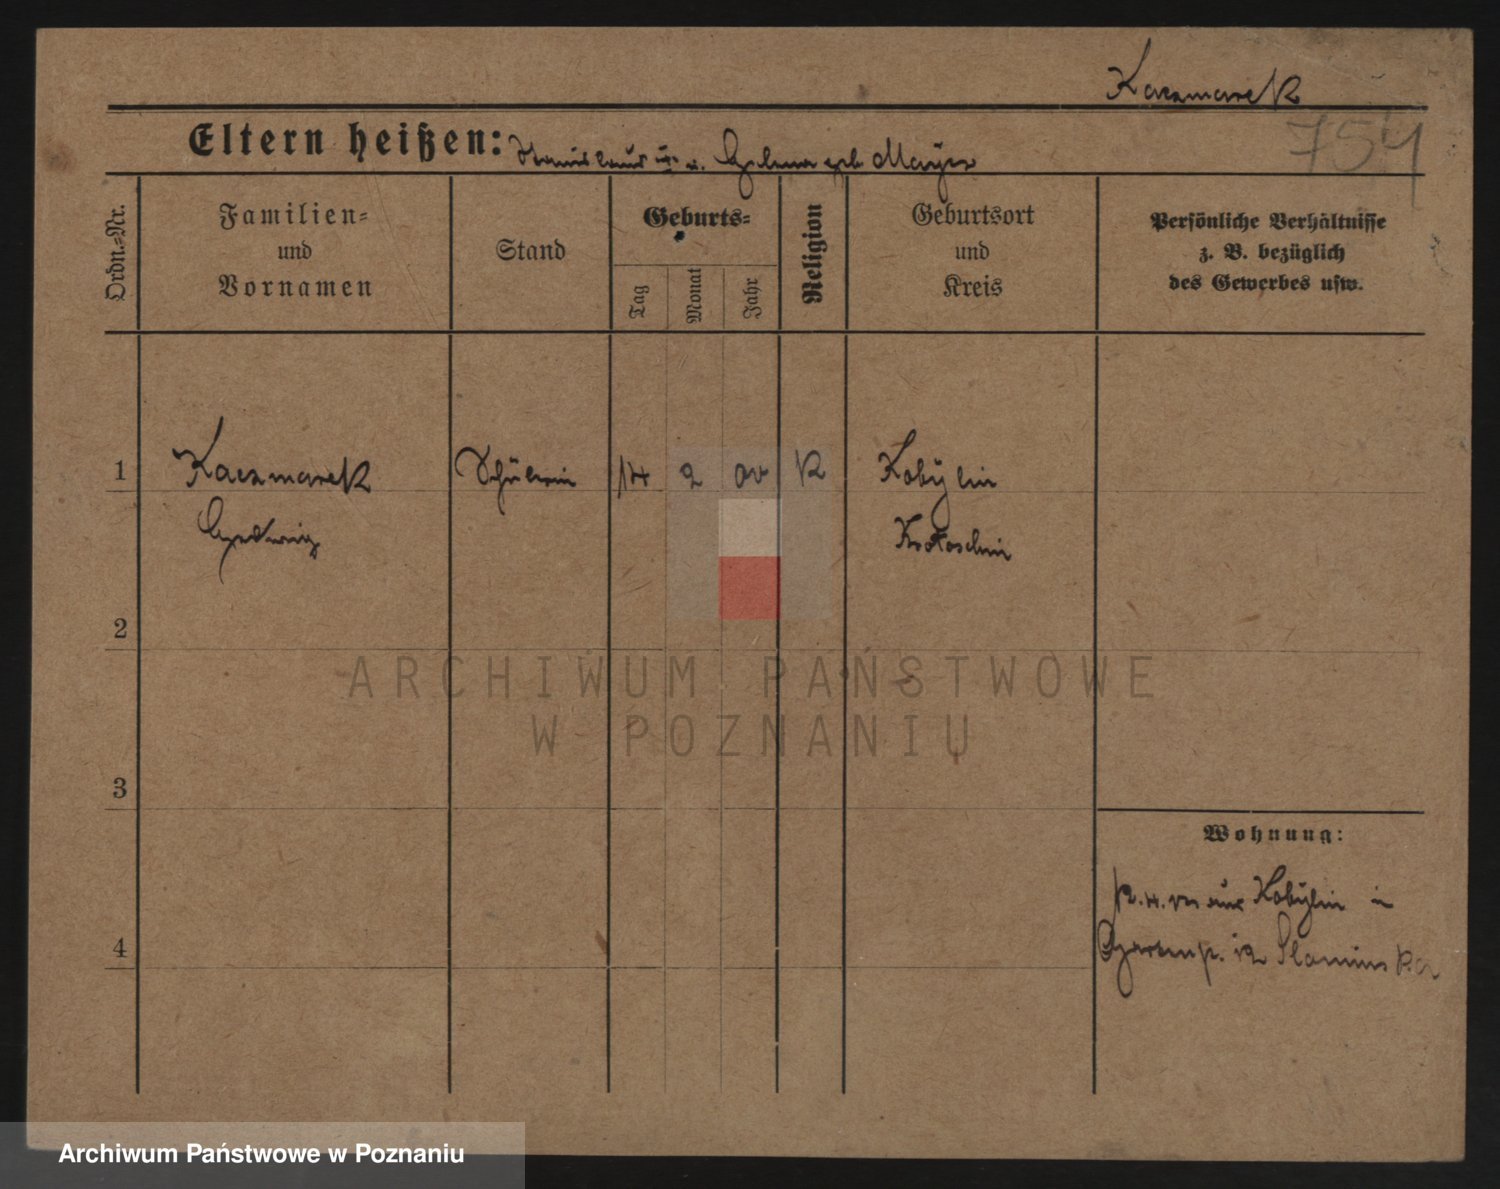 Kaczmarek
754
Eltern heißen: Stanislaus u. Helena geb Mayer
Ordn.=Nr.
Familien=
und
Vornamen
Stand
Geburts=
Tag
Monat
Jahr
Religion
Geburtsort
und
Kreis
Persönliche Verhältnisse
z. B. bezüglich
des Gewerbes usw.
1
Kaczmarek
Hedwig
Schülerin
14
2
00
K
Kobylin
Krotoschin
2
ARCHIWUM PAŃSTWOWE
W POZNANIU
3
Wohnung:
aus Kobylin in
Slaminska
4
Archiwum Państwowe w Poznaniu